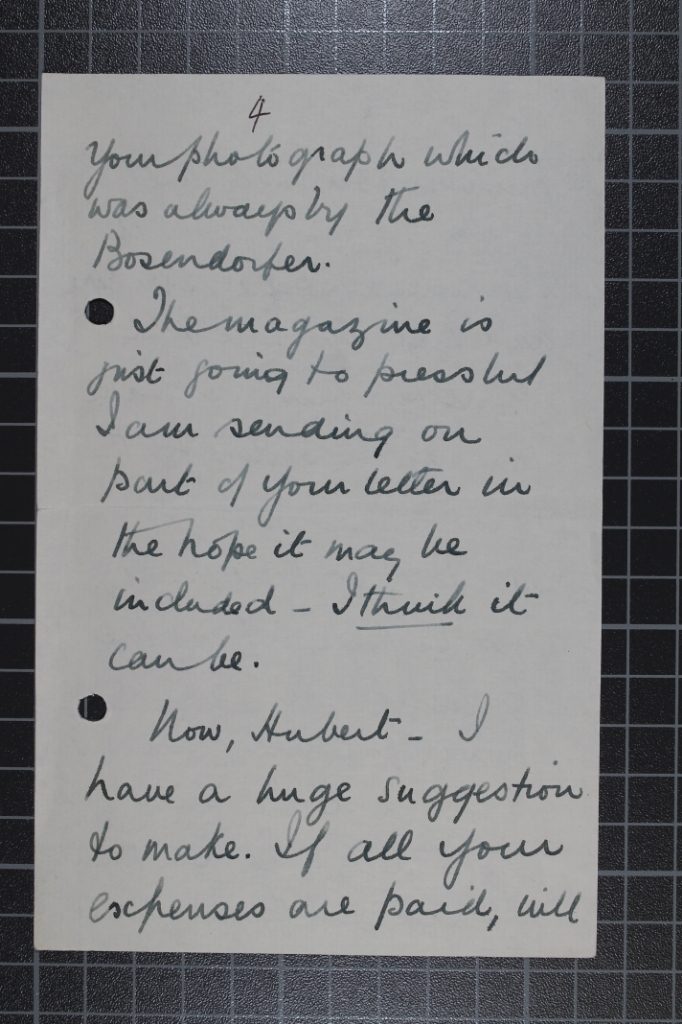 4
your photograph which
was always by the
Bosendorfer.
The magazine is
just going to press but
I am sending on
part of your letter in
the hope it may be
included - I think it
can be.
Now, Hubert - I
have a huge suggestion
to make. If all your
expenses are paid, will